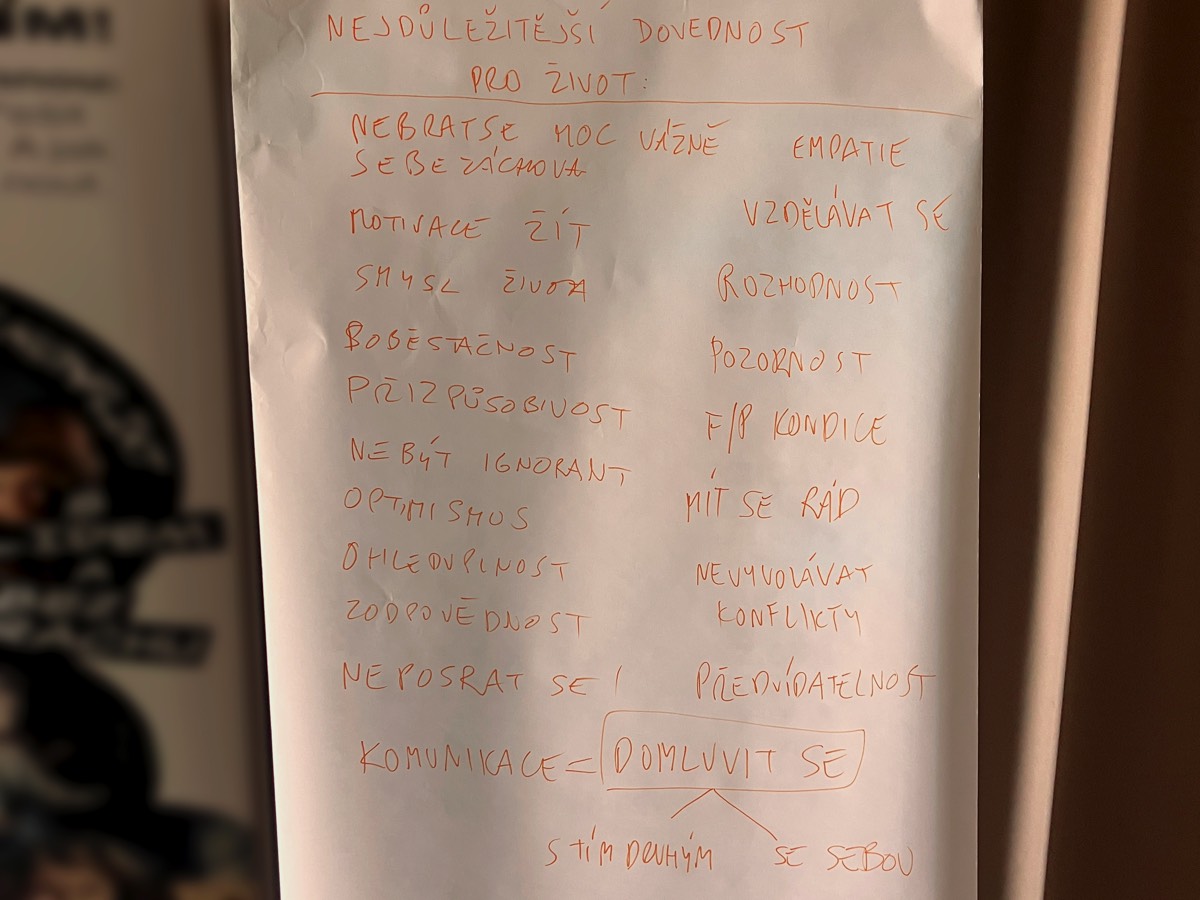 NEJDŮLEŽITĚJŠÍ DOVEDNOST
PRO ŽIVOT:
NEBRAT SE MOC VÁŽNĚ
SEBEZÁCHOVA
MOTIVACE ŽÍT
SMYSL ŽIVOTA
SOBĚSTAČNOST
PŘIZPŮSOBIVOST
NEBÝT IGNORANT
OPTIMISMUS
OHLEDUPLNOST
ZODPOVĚDNOST
NEPOSRAT SE!
EMPATIE
VZDĚLÁVAT SE
ROZHODNOST
POZORNOST
F/P KONDICE
MÍT SE RÁD
NEVYVOLÁVAT
KONFLIKTY
PŘEDVÍDATELNOST
KOMUNIKACE = DOMLUVIT SE
S TÍM DRUHÝM SE SEBOU